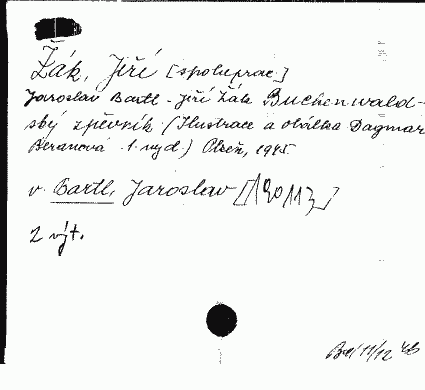 Žák, Jiří [spoluprac.]
Jaroslav Bartl - Jiří Žák Buchenwald-
ský zpěvník (Ilustrace a obálka Dagmar
Beranová 1. vyd.) Plzeň, 1945
v Bartl, Jaroslav
2 výt.